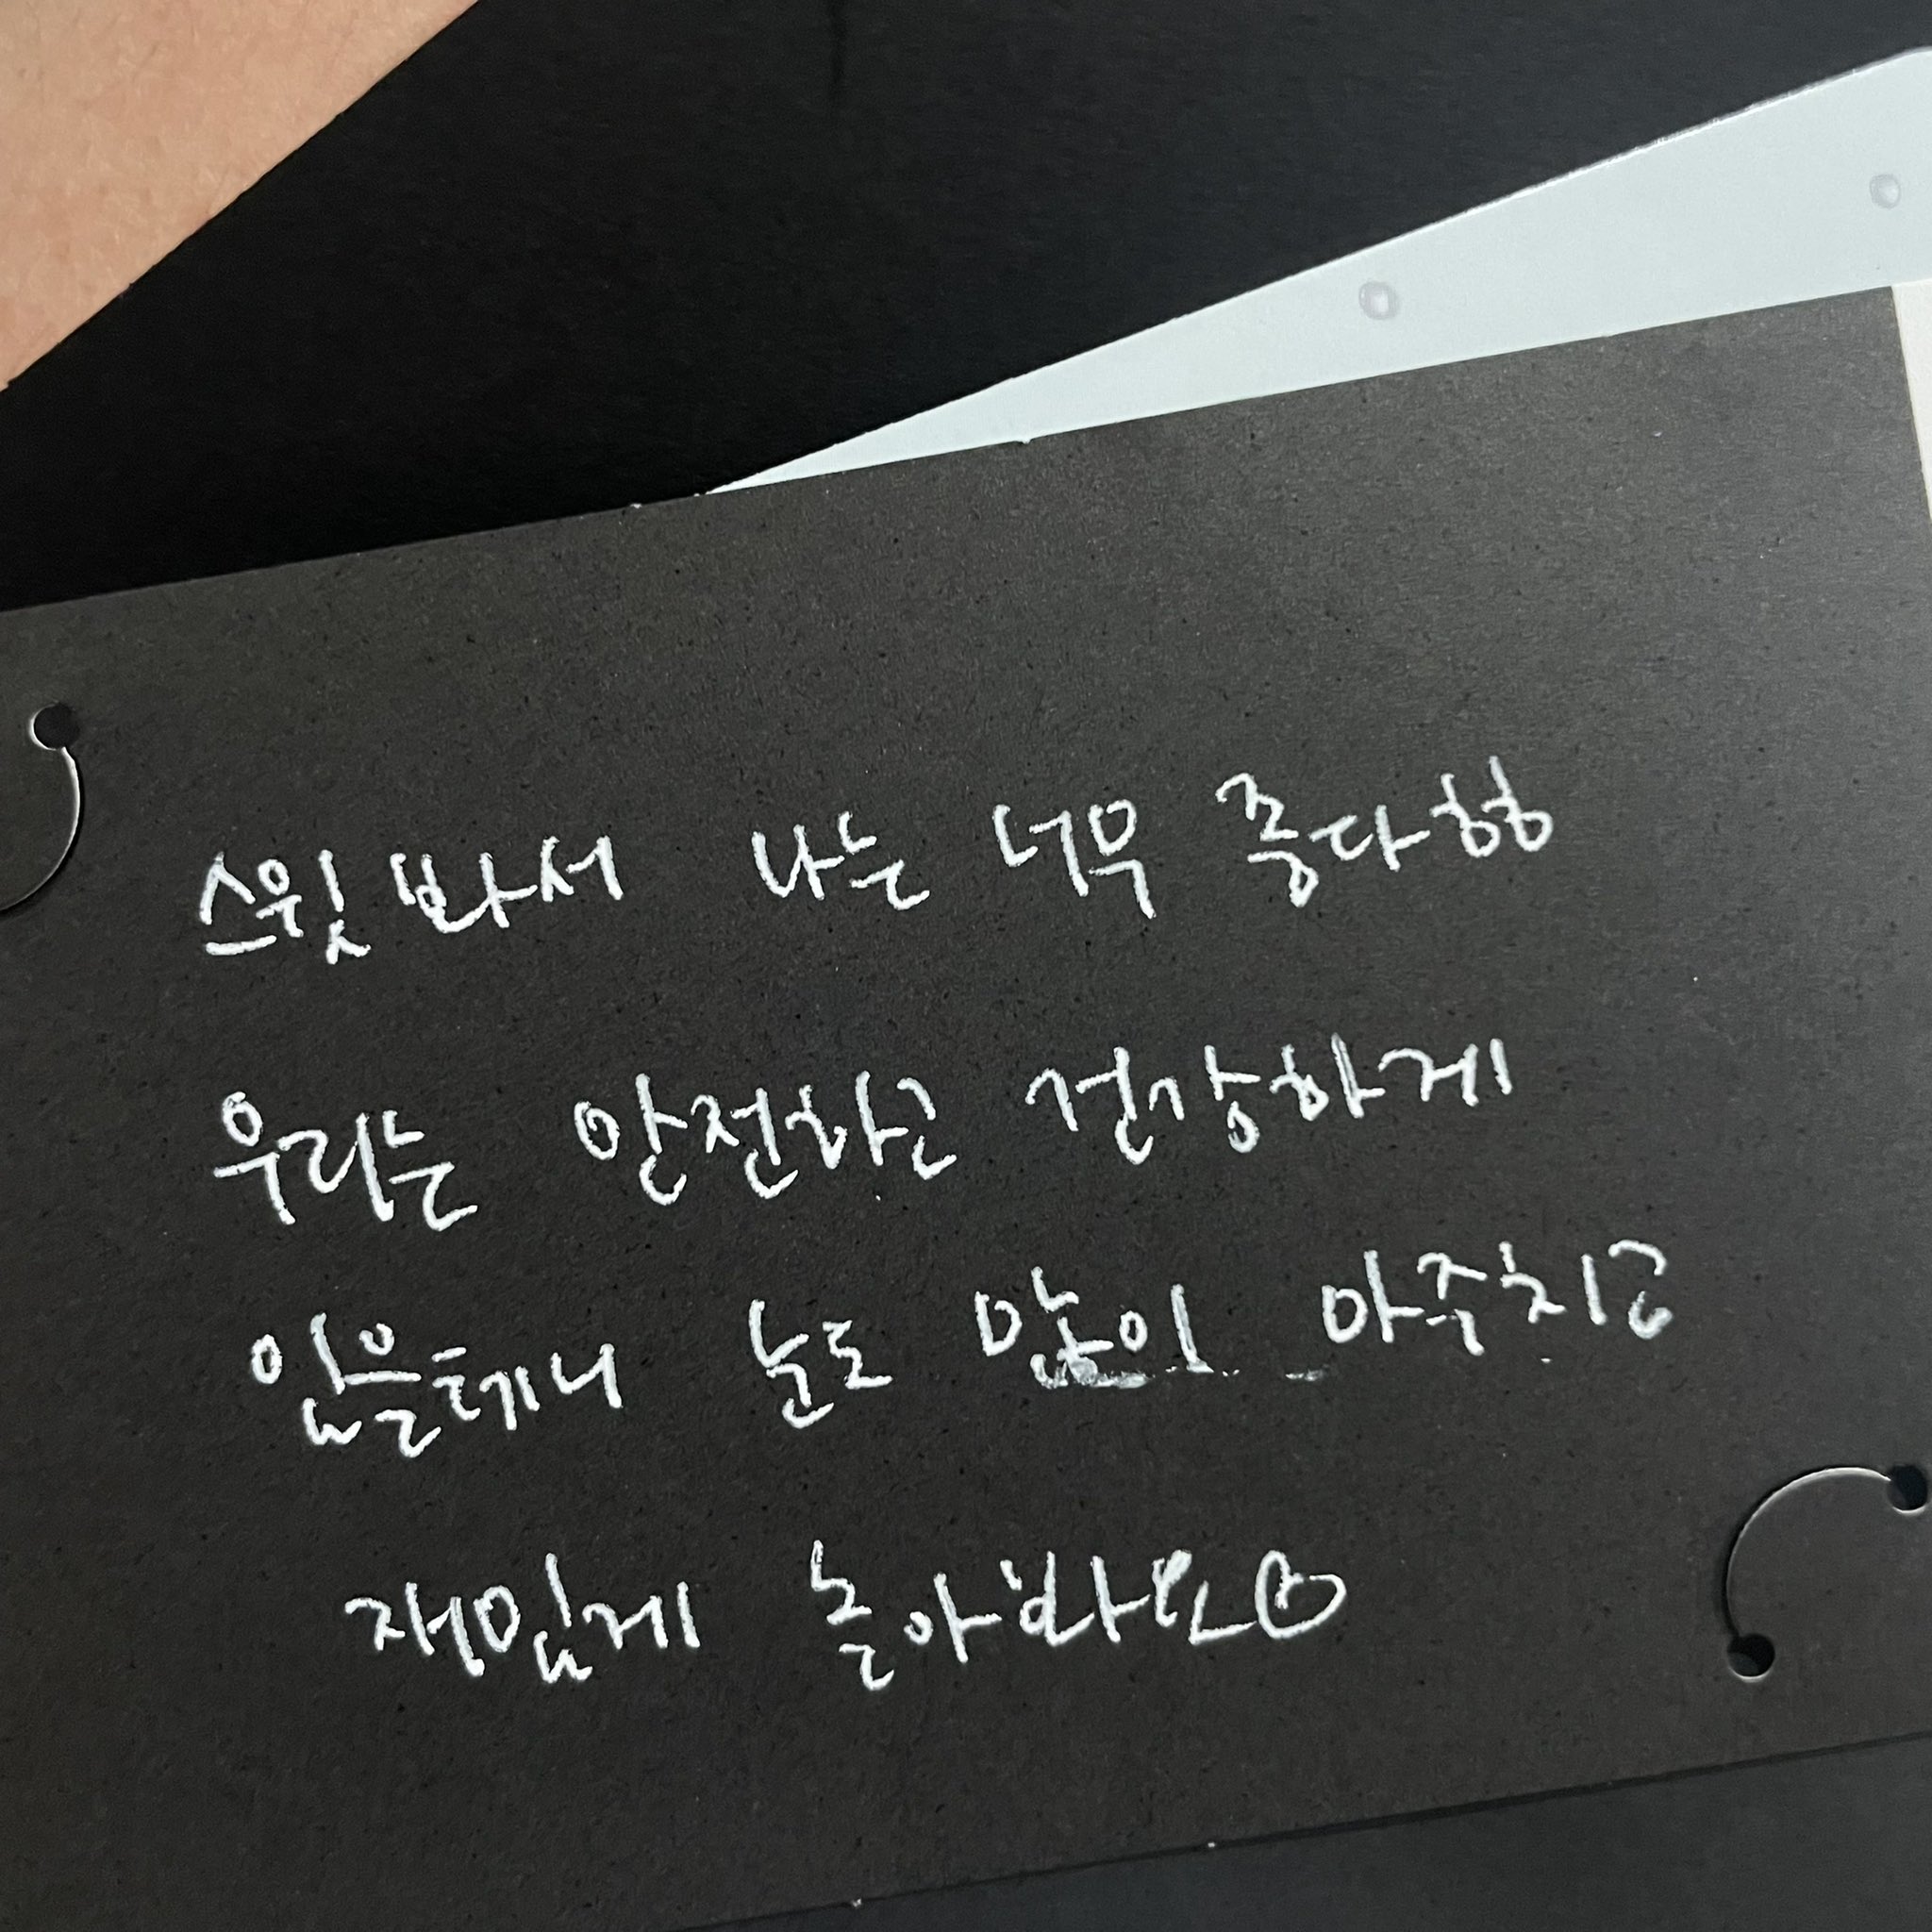 스윗 봐서 나는 너무 좋다형
우리는 안전하고 건강하게
있을테니 눈도 많이 마주치고
재밌게 놀아봐요♡